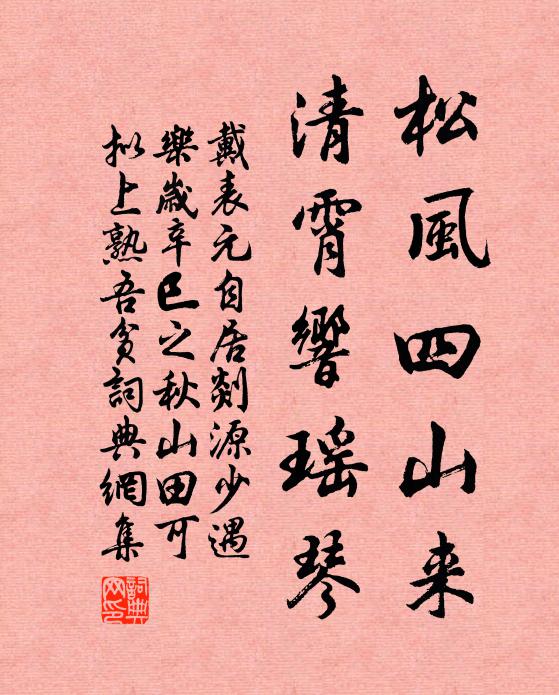 松風四山来
清霄響瑶琴
戴表元自居剡源少遇
樂歲辛巳之秋山田可
拟上熟吾貧詞典網集
詞典网印